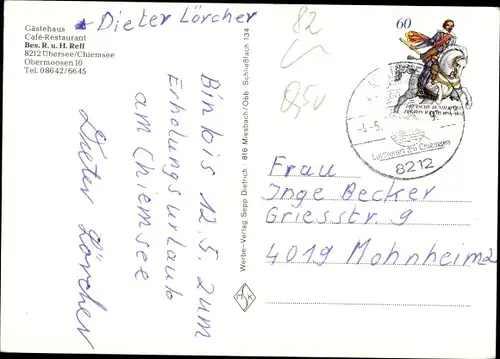 Gästehaus
Café-Restaurant
Bes. R. u. H. Reff
8212 Übersee/Chiemsee
Obermoosen 10
Tel. 0 86 42 / 66 45
Dieter Lörcher
Bin bis 12.5. zum
Erholungsurlaub
am Chiemsee
Dieter Lörcher
Werbe-Verlag Sepp Dietrich · 816 Miesbach/Obb. Schließfach 134
82
0,50
60
Luftkurort am Chiemsee
8212
Frau
Inge Becker
Griesstr. 9
4019 Mohnheim 2